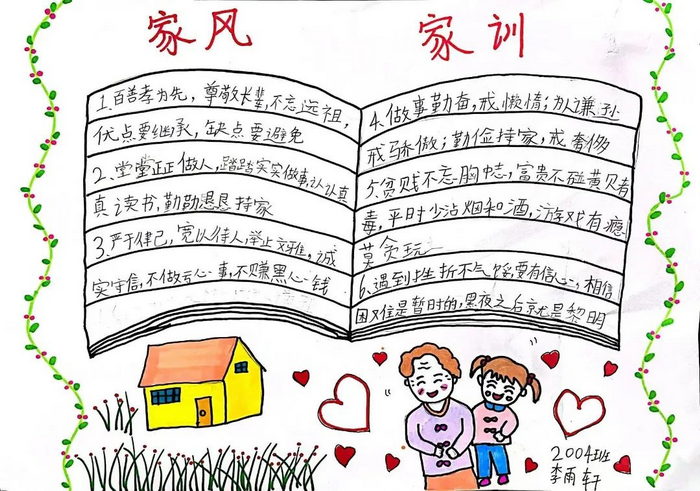 家风 家训
1.百善孝为先，尊敬长辈，不忘远祖，
优点要继承，缺点要避免
2.堂堂正正做人，踏踏实实做事认认真
真读书，勤勤恳恳持家
3.严于律己，宽以待人，举止文雅，诚
实守信，不做亏心事，不赚黑心钱
4.做事勤奋，戒懒惰；为人谦孙
戒骄傲；勤俭持家，戒奢侈
5.贫贱不忘胸中志，富贵不碰黄贝者
毒，平时少沾烟和酒，游戏有瘾
莫贪玩
6.遇到挫折不气馁要有信心，相信
困难是暂时的，黑夜之后就是黎明
2004班
李雨轩